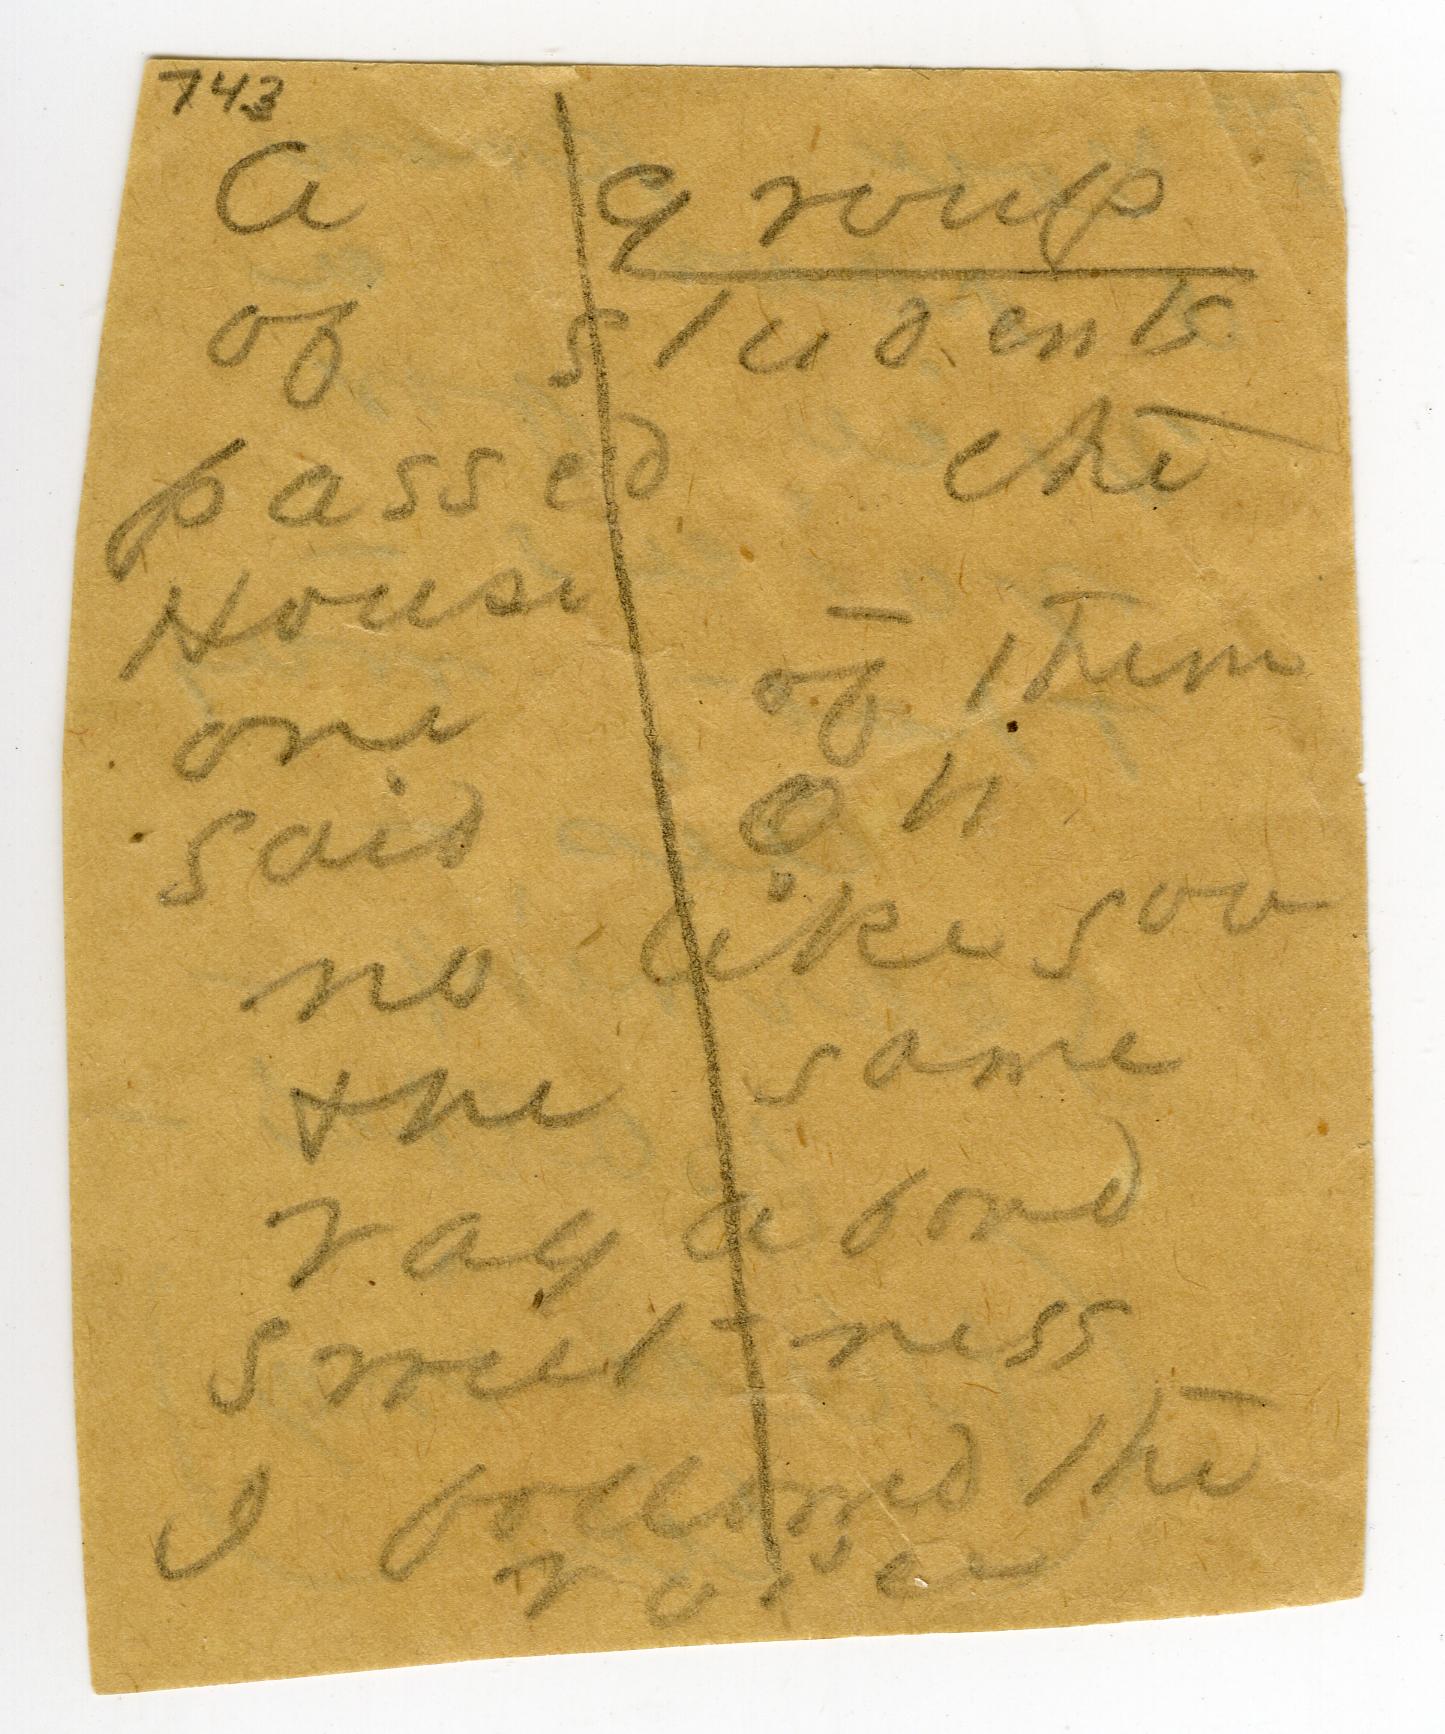 743
A group
of students
passed the
House
one of them
said Oh
no like you
the same
vagabond
Sweet-ness
I followed the
voice